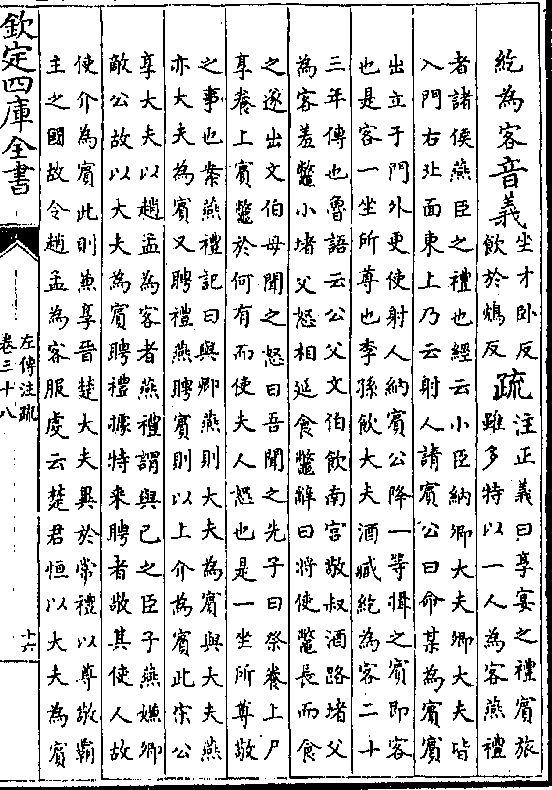 紇為客音義坐才卧反
飲於鴆反疏注正義曰享宴之禮賓旅
雖多特以一人為客燕禮
者諸侯燕臣之禮也經云小臣納卿大夫卿大夫皆
入門右北面東上乃云射人請賓公曰命某為賓賓
出立于門外更使射人納賓公降一等揖之賓即客
也是客一坐所尊也季孫飲大夫酒臧紇為客二十
三年傳也魯語云公父文伯飲南宫敬叔酒路堵父
為客羞鼈小堵父怒相延食鼈辭曰將使鼈長而食
之遂出文伯母聞之怒曰吾聞之先子曰祭養上尸
享養上賓鼈於何有而使夫人怒也是一坐所尊敬
之事也案燕禮記曰與卿燕則大夫為賓與大夫燕
亦大夫為賓又聘禮燕聘賓則以上介為賓此宋公
享大夫以趙孟為客者燕禮謂與已之臣子燕嫌卿
敵公故以大夫為賓聘禮據特來聘者敬其使人故
使介為賓此則兼享晉楚大夫異於常禮以尊敬霸
主之國故令趙孟為客服虔云楚君恒以大夫為賓
欽定四庫全書
左傳注疏
卷三十八
十六